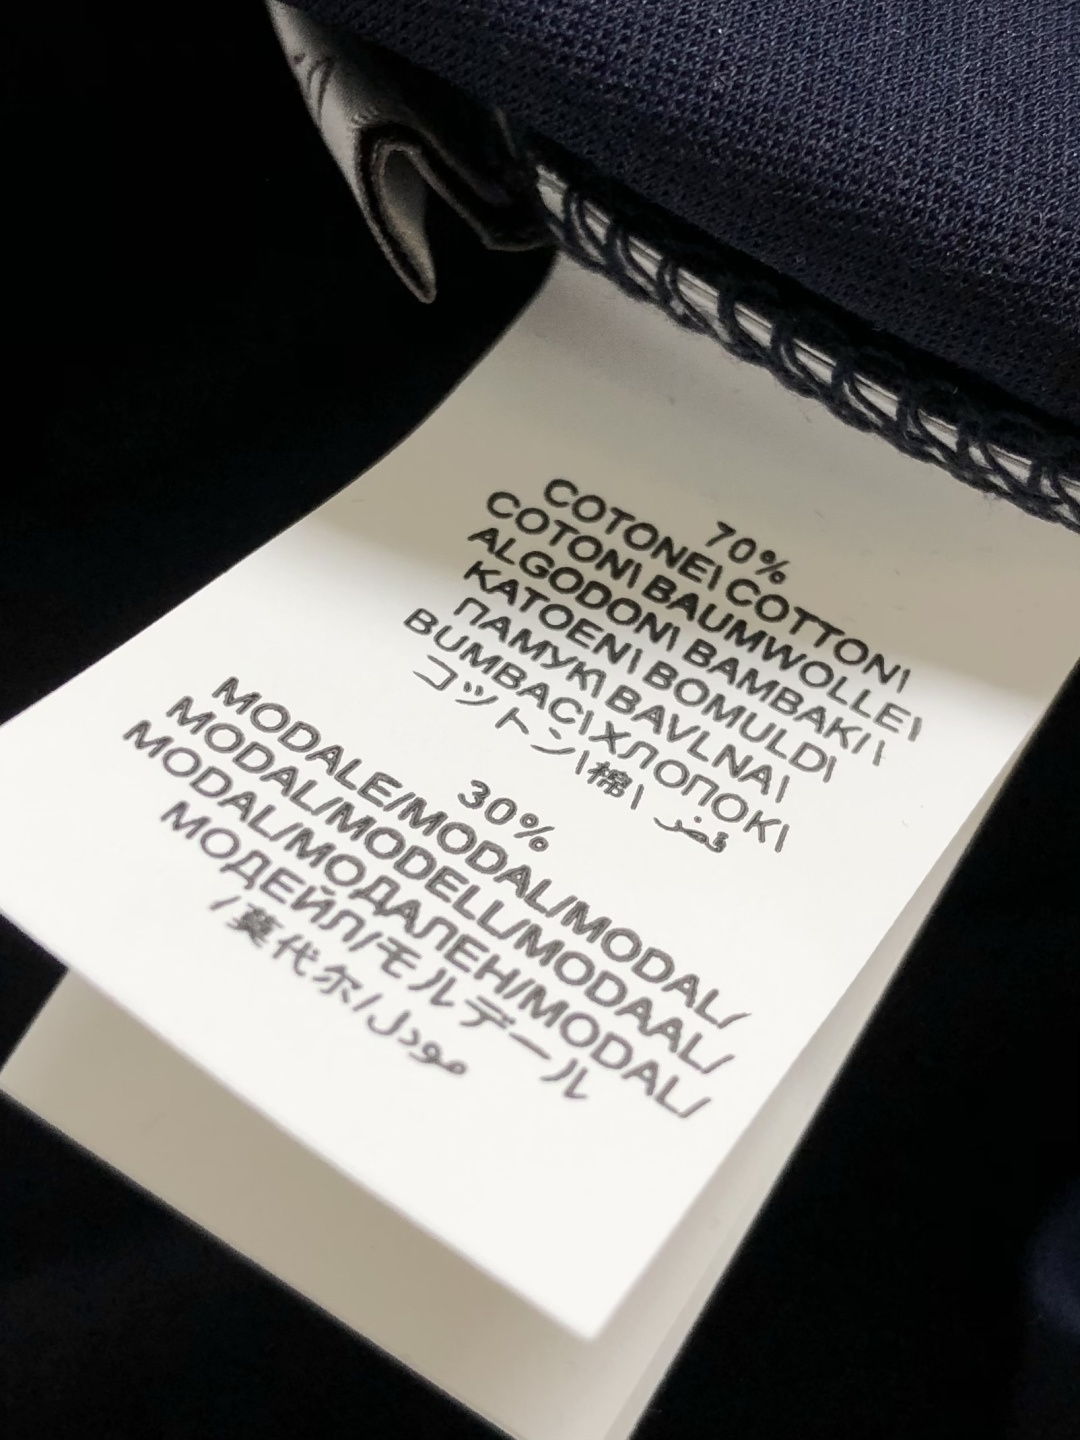 70%
COTONE\ COTTON\
COTON\ BAUMWOLLE\
ALGODON\ BAMBAKI\
KATOEN\ BOMULD\
ПАМУК\ BAVLNA\
BUMBAC\ ХЛОПОК\
コットン\棉\
30%
MODALE/MODAL/MODAL/
MODAL/MODELL/MODAAL/
MODAL/МОДАЛЕН/MODAL/
МОДЕЙЛ/モルデール
/莫代尔/مودل